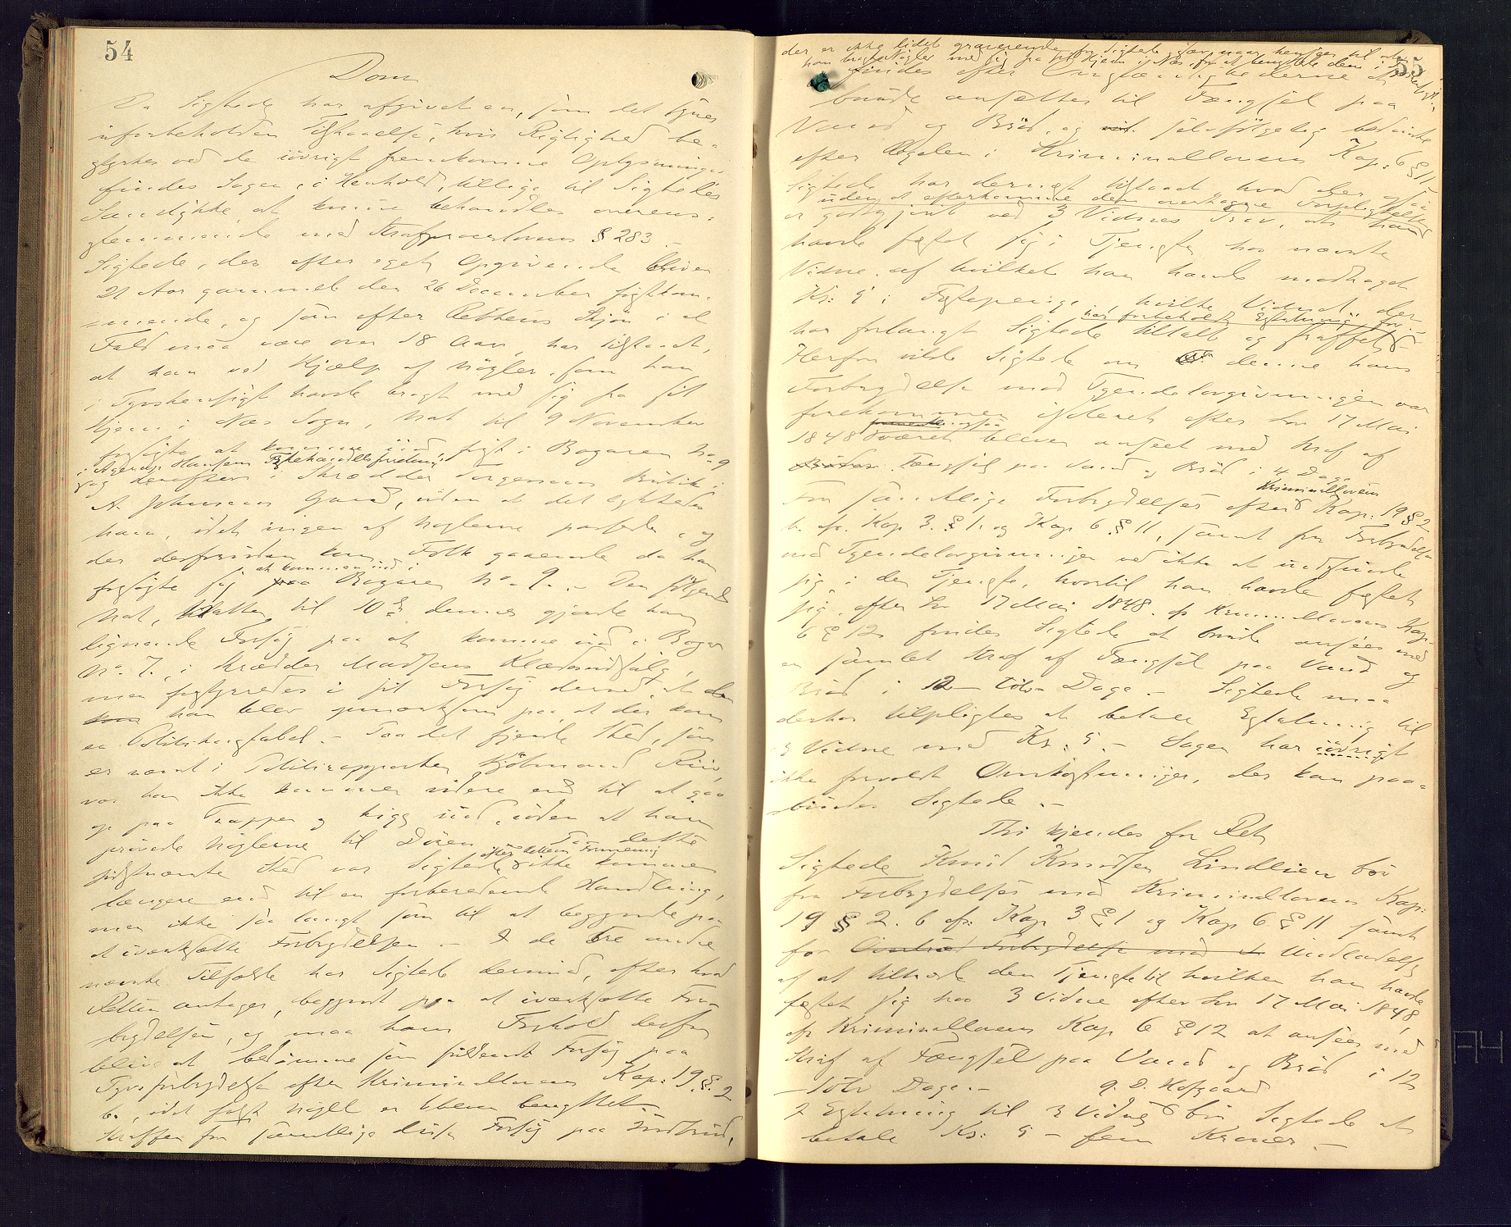 54
Dom
Da Sigtede har afgivet en, som det synes
uforbeholden Tilstaaelse, hvis Rigtighed be-
styrkes ved de iøvrigt fremkomne Oplysninger
findes Sagen, i Henhold, tillige, til Sigtedes
Samtykke, at kunne behandles overens-
stemmende med Straffeproceslovens § 283.
Sigtede, der efter eget Opgivende bliver
21 Aar gammel den 26 December førstkom-
mende, og som efter Rettens Skjøn i al
Fald maa være over 18 Aar, har tilstaaet,
at han ved Hjælp af Nøgler, som han
i Tyvshensigt havde bragt med sig fra sit
Hjem i Næs Sogn, Nat til 9 November
forsøgte at komme ind først i Bogaren No 9
i Hansens
og derefter i Skrædder Jørgensens Butik i
A. Johnsens Gaard, uden at det lykkedes
ham, idet ingen af Nøglerne passede, og
der desforuden kom Folk gaaende da han
at komme ind i
forsøgte sig paa Bogaren No 9. – Den følgende
Nat, Natten til 10 ds dennes gjorde han
lignende Forsøg paa at komme ind i Bogar
No 7, i Skrædder Madsens Klædeudsalg,
men forstyrredes i sit Forsøg derved, at den
han blev opmærksom paa, at der kom
en Politikonstabel. – Paa det fjerde Sted, som
er nævnt i Politirapporten, Kjøbmand
var han ikke kommen videre end til at gaa
op paa Trappen og kigge ind, uden at han
prøvede Nøglerne til Døren. Paa dette
efter Rettens Formening
sidstnævnte Sted var Sigtede ikke kommen
længere end til en forberedende Handling,
men ikke saa langt som til at begynde paa
at iværksætte Forbrydelsen. – I de tre andre
nævnte Tilfælde har Sigtede dermed, efter hvad
Retten antager, begyndt paa at iværksætte For-
brydelsen, og maa hans Forhold derfor
blive at bedømme som fuldendt Forsøg paa
Tyvsforbrydelse efter Kriminallovens Kap. 19 § 2
b, idet falsk Nøgle er bleven benyttet.
Straffen for samtlige disse Forsøg paa Indbrud,
55
der er ikke lidet graverende for Sigtede, især naar henses til at
han bragte Nøgler med sig fra sit Hjem i Næs for at benytte dem i
findes efter Omstændighederne at
burde ansættes til Fængsel paa
Vand og Brød, og selvfølgelig bedømte
efter Regelen i Kriminallovens Kap. 6 § 11
Sigtede har dernæst tilstaaet, hvad der
uden at efterkomme den overtagne Forpligtelse
er godtgjort ved 3 Vidnes Prov, at han
havde fæstet sig i Tjeneste hos nævnte
Vidne, af hvilket han havde modtaget
Kr: 5 i Fæstepenge, hvilke Vidnet, der
har forbeholdt Erstatning for
har forlangt Sigtede tiltalt og straffet
Herfor vilde Sigtede, om denne hans
Forbrydelse mod Tyendelovgivningen var
forekommen isoleret efter Lov 17 Mai
1848 været bleven anseet med Straf af
Fængsel paa Vand og Brød i 4 Dage
Kriminallovens
For samtlige Forbrydelser efter Kap. 19 § 2
b. cfr. Kap. 3 § 1. og Kap 6 § 11, samt for Forbrydelse
mod Tyendelovgivningen ved ikke at indfinde
sig i den Tjeneste, hvortil han havde fæstet
sig, efter Lov 17 Mai 1848. cfr Kriminallovens Kap
6 § 12 findes Sigtede at burde ansees med
en samlet Straf af Fængsel paa Vand og
Brød i 12 – tolv – Dage. – Sigtede maa
derhos tilpligtes at betale Erstatning til
3 Vidne med Kr: 5. – Sagen har iøvrigt
ikke forvoldt Omkostninger, der kan paa-
byrdes Sigtede. –
Thi kjendes for Ret
Sigtede Knud Knudsen Lindlien bør
for Forbrydelser mod Kriminallovens Kap:
19 § 2. b cfr. Kap 3 § 1 og Kap 6 § 11 samt
for Forbrydelse mod Undladelse
af at tiltræde den Tjeneste til hvilken han havde
fæstet sig hos 3 Vidne efter Lov 17 Mai 1848,
cfr Kriminallovens Kap 6 § 12 at ansees med
Straf af Fængsel paa Vand og Brød i 12
– tolv Dage. –
O. D. Hofgaard
I Erstatning til 3 Vidne bør Sigtede at
betale Kr: 5 – fem Kroner. –